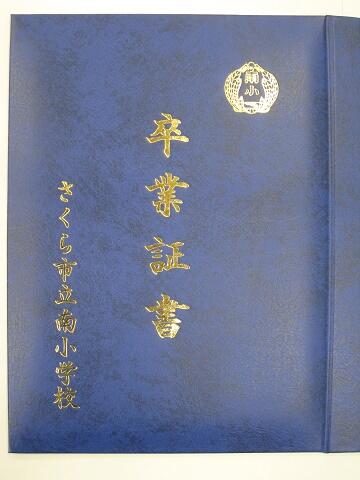 南小
卒業証書
さくら市立南小学校